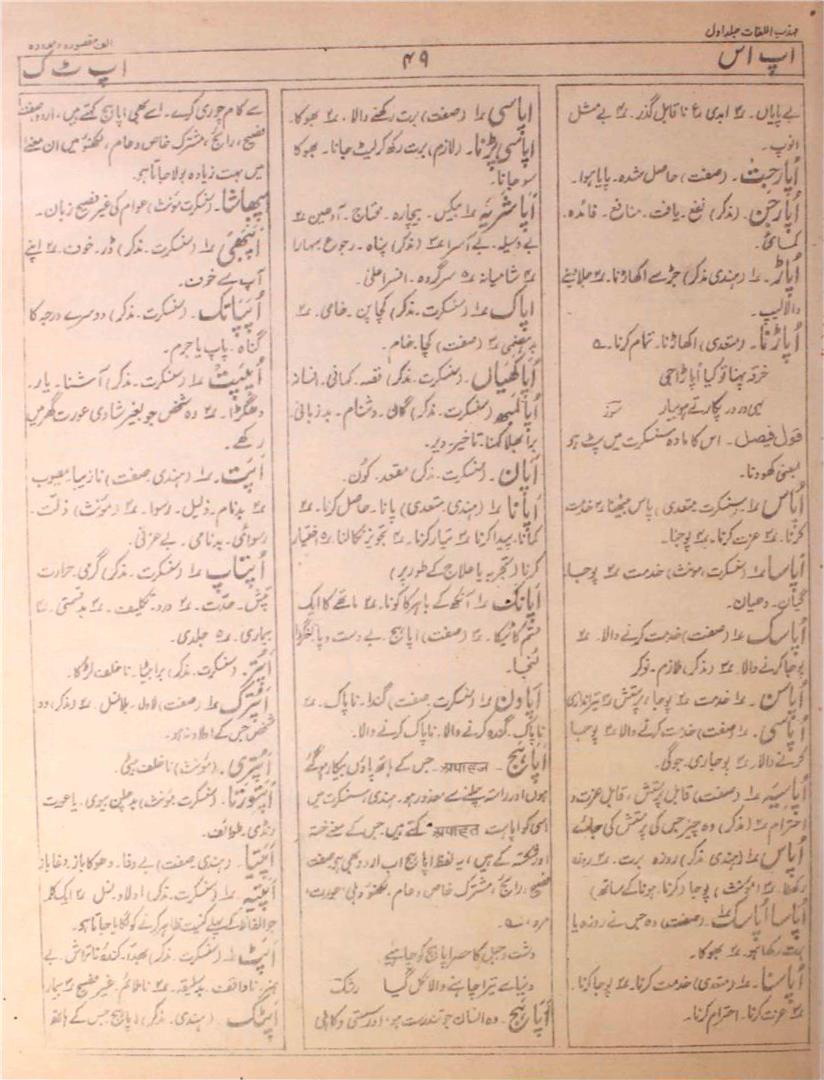 مہذب اللغات جلد اول
الف مقصورہ و ممدودہ
اپ اس
۴۹
اپ ٹ ک
بے پایاں۔ ۳ ابدی ۴ نا قابل گذر۔ ۴ بے مثل
انوپ۔
اُپارجِت۔ (صفت) حاصل شدہ۔ پایا ہوا۔
اُپارجَن۔ (مذکر) نفع۔ یافت۔ منافع۔ فائدہ۔
کمائی۔
اُپاڑ۔ ۱ (ہندی مذکر) جڑ سے اکھاڑنا۔ ۲ جلا دینے
والا لیپ۔
اُپاڑنا۔ (متعدی) اکھاڑنا۔ تمام کرنا۔ ے
خرقہ پہنا تو کیا اُپاڑا جی
یہی در در پکارتے ہو بیار سوز
قول فیصل۔ اس کا مادہ سنسکرت میں پٹ ہے
بمعنی کھودنا۔
اُپاس ۱ (سنسکرت متعدی) پاس بیٹھنا ۲ خدمت
کرنا۔ ۳ عزت کرنا۔ ۴ پوجنا۔
اُپاسا ۱ (سنسکرت، مونث) خدمت ۲ پوجا۔
گیان۔ دھیان۔
اُپاسک ۱ (صفت) خدمت کرنے والا۔ ۲
پوجا کرنے والا۔ ۳ (مذکر) ملازم۔ نوکر
اُپاسن۔ ۱ خدمت ۲ پوجا، پرستش ۳ تیر اندازی
اُپاسی۔ ۱ (صفت) خدمت کرنے والا ۲ پوجا
کرنے والا۔ ۳ پوجاری۔ جوگی۔
اُپاسیہ ۱ (صفت) قابل پرستش، قابل عزت و
احترام ۲ (مذکر) وہ چیز جس کی پرستش کی جائے
اُپاس ۱ (ہندی مذکر) روزہ برت۔ ۲ روزہ
رکھنا۔ ۳ (مونث) پوجا (کرنا۔ ہونا کے ساتھ)
اُپاسا اُپاسک ۱ (صفت) وہ جس نے روزہ یا
برت رکھا ہو۔ ۲ بھوکا۔
اُپاسنا۔ ۱ (متعدی) خدمت کرنا۔ ۲ پوجا کرنا۔
۳ عزت کرنا۔ احترام کرنا۔
اُپاسی ۱ (صفت) برت رکھنے والا۔ ۲ بھوکا۔
اُپاسی پڑنا۔ (لازم) برت رکھ کر لیٹ جانا۔ بھوکا
سو جانا۔
اُپاشریہ ۱ بیکس۔ بیچارہ۔ محتاج۔ آدھین ۲
بے وسیلہ۔ بے آسرا ۳ (مذکر) پناہ۔ رجوع سہارا
۴ شامیانہ ۵ سرگروہ۔ افسر اعلیٰ۔
اپاک ۱ (سنسکرت۔ مذکر) کچا پن۔ خامی۔ ۲
بدہضمی ۳ (صفت) کچا۔ خام۔
اُپاکھیاں۔ (سنسکرت۔ مذکر) قصہ۔ کہانی۔ افسانہ
اُپالمبھ (سنسکرت۔ مذکر) گالی۔ دشنام۔ بدزبانی۔
برا بھلا کہنا۔ تاخیر۔ دیر۔
اَپان۔ (سنسکرت۔ مذکر) مقعد۔ کون۔
اُپانا ۱ (ہندی متعدی) پانا۔ حاصل کرنا۔ ۲
کمانا۔ پیدا کرنا ۳ تیار کرنا۔ ۴ تجویز نکالنا۔ ۵ اختیار
کرنا (تجربہ یا علاج کے طور پر)
اَپانک ۱ آنکھ کے باہر کا کونا۔ ۲ ماتھے کا ایک
قسم کا ٹیکا۔ ۳ (صفت) اپاہج۔ بے دست و پا لنگڑا
لنجا۔
اَپاون ۱ (سنسکرت۔ صفت) گندا۔ ناپاک۔ ۲
ناپاک۔ گندہ کرنے والا۔ ناپاک کرنے والا۔
اَپاہج۔ अपाहज۔ جس کے ہاتھ پاؤں بیکار ہو گئے
ہوں اور راستہ چلنے سے معذور ہو۔ ہندی سنسکرت میں
اسی کو اپاہت अपाहत کہتے ہیں جس کے معنے خستہ
اور شکستہ کے ہیں، یہ لفظ اپاہج اب اردو بھی ہے صفت
فصیح، رائج، مشترک خاص و عام، لکھنؤ و دہلی عورت،
مرد، ے
دشت و جبل کا حصر اپاہج کو چاہیے
دنیا سے تیرا چاہنے والا نکل گیا رشک
اَپاہج۔ وہ انسان جو تندرست ہو، اور سستی و کاہلی
سے کام چوری کرے۔ اسے بھی اپاہج کہتے ہیں، اردو صفت
فصیح، رائج، مشترک خاص و عام، لکھنؤ میں ان معنے
میں بہت زیادہ بولا جاتا ہے۔
اپبھاشا۔ (سنسکرت مونث) عوام کی غیر فصیح زبان۔
اَپبھئی ۱ (سنسکرت۔ مذکر) ڈر۔ خوف۔ ۲ اپنے
آپ سے خوف۔
اُپپاتک۔ (سنسکرت۔ مذکر) دوسرے درجہ کا
گناہ۔ پاپ یا جرم۔
اُپپت ۱ (سنسکرت۔ مذکر) آشنا۔ یار۔
دھگڑا۔ ۲ وہ شخص جو بغیر شادی عورت گھر میں
رکھے۔
اَپَت۔ ۱ (ہندی صفت) نازیبا۔ معیوب
۲ بدنام۔ ذلیل۔ رسوا۔ ۳ (مونث) ذلت۔
رسوائی۔ بدنامی۔ بے عزتی۔
اُپتاپ ۱ (سنسکرت۔ مذکر) گرمی۔ حرارت
تپش۔ حدت۔ ۲ درد۔ تکلیف۔ ۳ بدقسمتی۔ ۴
بیماری۔ ۵ جلدی۔
اَپتر۔ (سنسکرت۔ مذکر) برا بیٹا۔ ناخلف لڑکا۔
اَپترک ۱ (صفت) لاولد۔ بلا نسل۔ ۲ (مذکر) وہ
شخص جس کے اولاد نہ ہو۔
اَپتری۔ (مونث) ناخلف بیٹی۔
اَپتورتا۔ (سنسکرت۔ مونث) بدچلن بیوی۔ یا عورت
رنڈی۔ طوائف۔
اَپتیا۔ (ہندی۔ صفت) بے وفا۔ دھوکا باز۔ دغا باز
اَپتیہ ۱ (سنسکرت۔ مذکر) اولاد۔ نسل ۲ ایک کلمہ
جو الفاظ کے پہلے کنیت ظاہر کرنے کو لگایا جاتا ہو۔
اَپٹ ۱ (سنسکرت۔ مذکر) بھدا۔ کندہ ناتراش بے
ہنر۔ ناواقف۔ بدسلیقہ۔ ۲ ناملائم۔ غیر فصیح ۳ بیمار
اَپٹک۔ (ہندی۔ مذکر) اپاہج جس کے ہاتھ